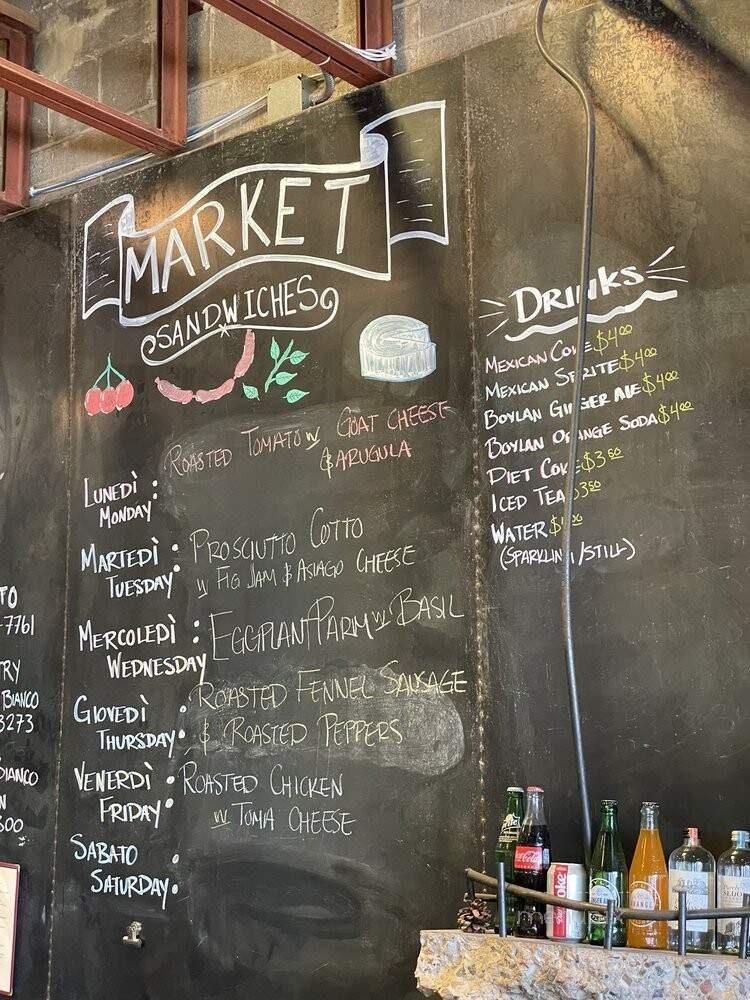 MARKET
SANDWICHES
ROASTED TOMATO w/ GOAT CHEESE
& ARUGULA
LUNEDÌ :
MONDAY
MARTEDÌ :
TUESDAY
PROSCIUTTO COTTO
w/ FIG JAM & ASIAGO CHEESE
MERCOLEDÌ :
WEDNESDAY
EGGPLANT PARM w/ BASIL
GIOVEDÌ :
THURSDAY
ROASTED FENNEL SAUSAGE
& ROASTED PEPPERS
VENERDÌ :
FRIDAY
ROASTED CHICKEN
w/ TOMA CHEESE
SABATO :
SATURDAY
DRINKS
MEXICAN COKE $4.00
MEXICAN SPRITE $4.00
BOYLAN GINGER ALE $4.00
BOYLAN ORANGE SODA $4.00
DIET COKE $3.50
ICED TEA 3.50
WATER
(SPARKLING/STILL)
TO
-7761
TRY
BIANCO
3273
BIANCO
N
300
Coca-Cola